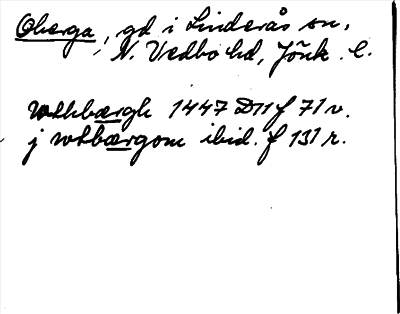 Oberga, gd i Linderås sn,
N. Vedbo hd, Jönk. l.
wthbærgh 1447 D11 f 71 v.
j wtbærgom ibid. f 131 r.